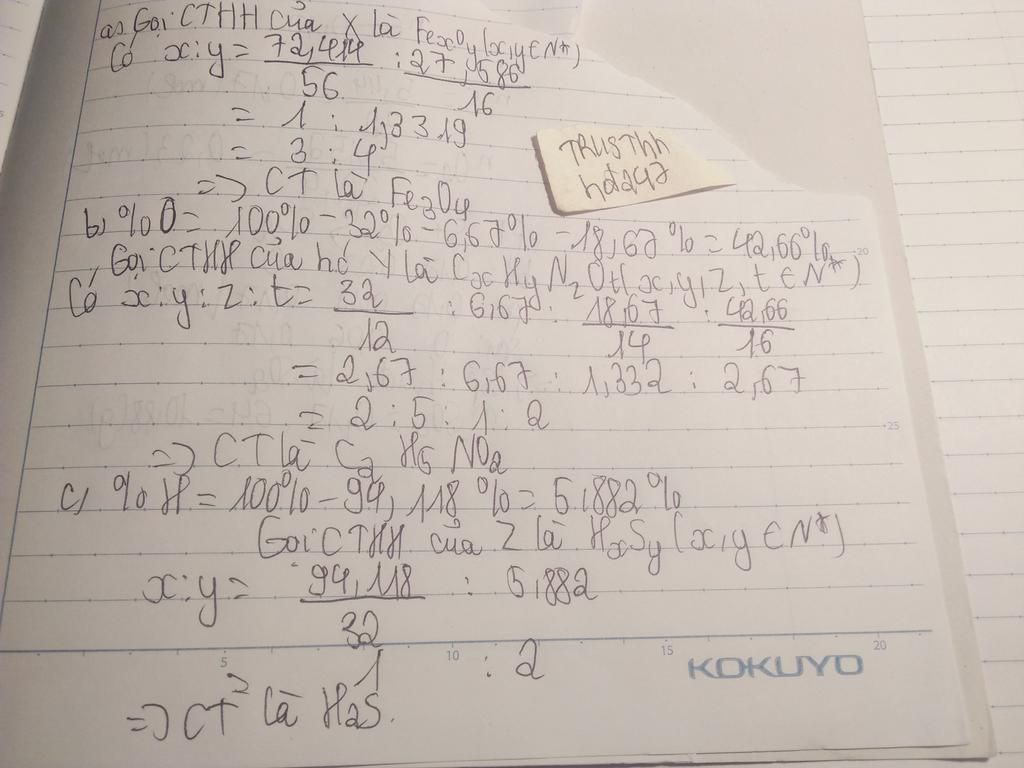 a, Gọi CTHH của X là FexOy (x,y ∈ N*)
Có x:y = 72,414/56 : 27,586/16
= 1 : 1,3319
= 3 : 4
=> CT là Fe3O4
TRUSThh
hd247
b, %O = 100% - 32% - 6,67% - 18,67% = 42,66%
Gọi CTHH của h.c Y là CxHyNzOt (x,y,z,t ∈ N*)
Có x:y:z:t = 32/12 : 6,67 : 18,67/14 : 42,66/16
= 2,67 : 6,67 : 1,332 : 2,67
= 2 : 5 : 1 : 2
=> CT là C2 H5 NO2
c, %H = 100% - 94,118% = 5,882%
Gọi CTHH của Z là HxSy (x,y ∈ N*)
x:y = 94,118/32 : 5,882
1 : 2
=> CT là H2S.
20
25
5 10 15 20
KOKUYO